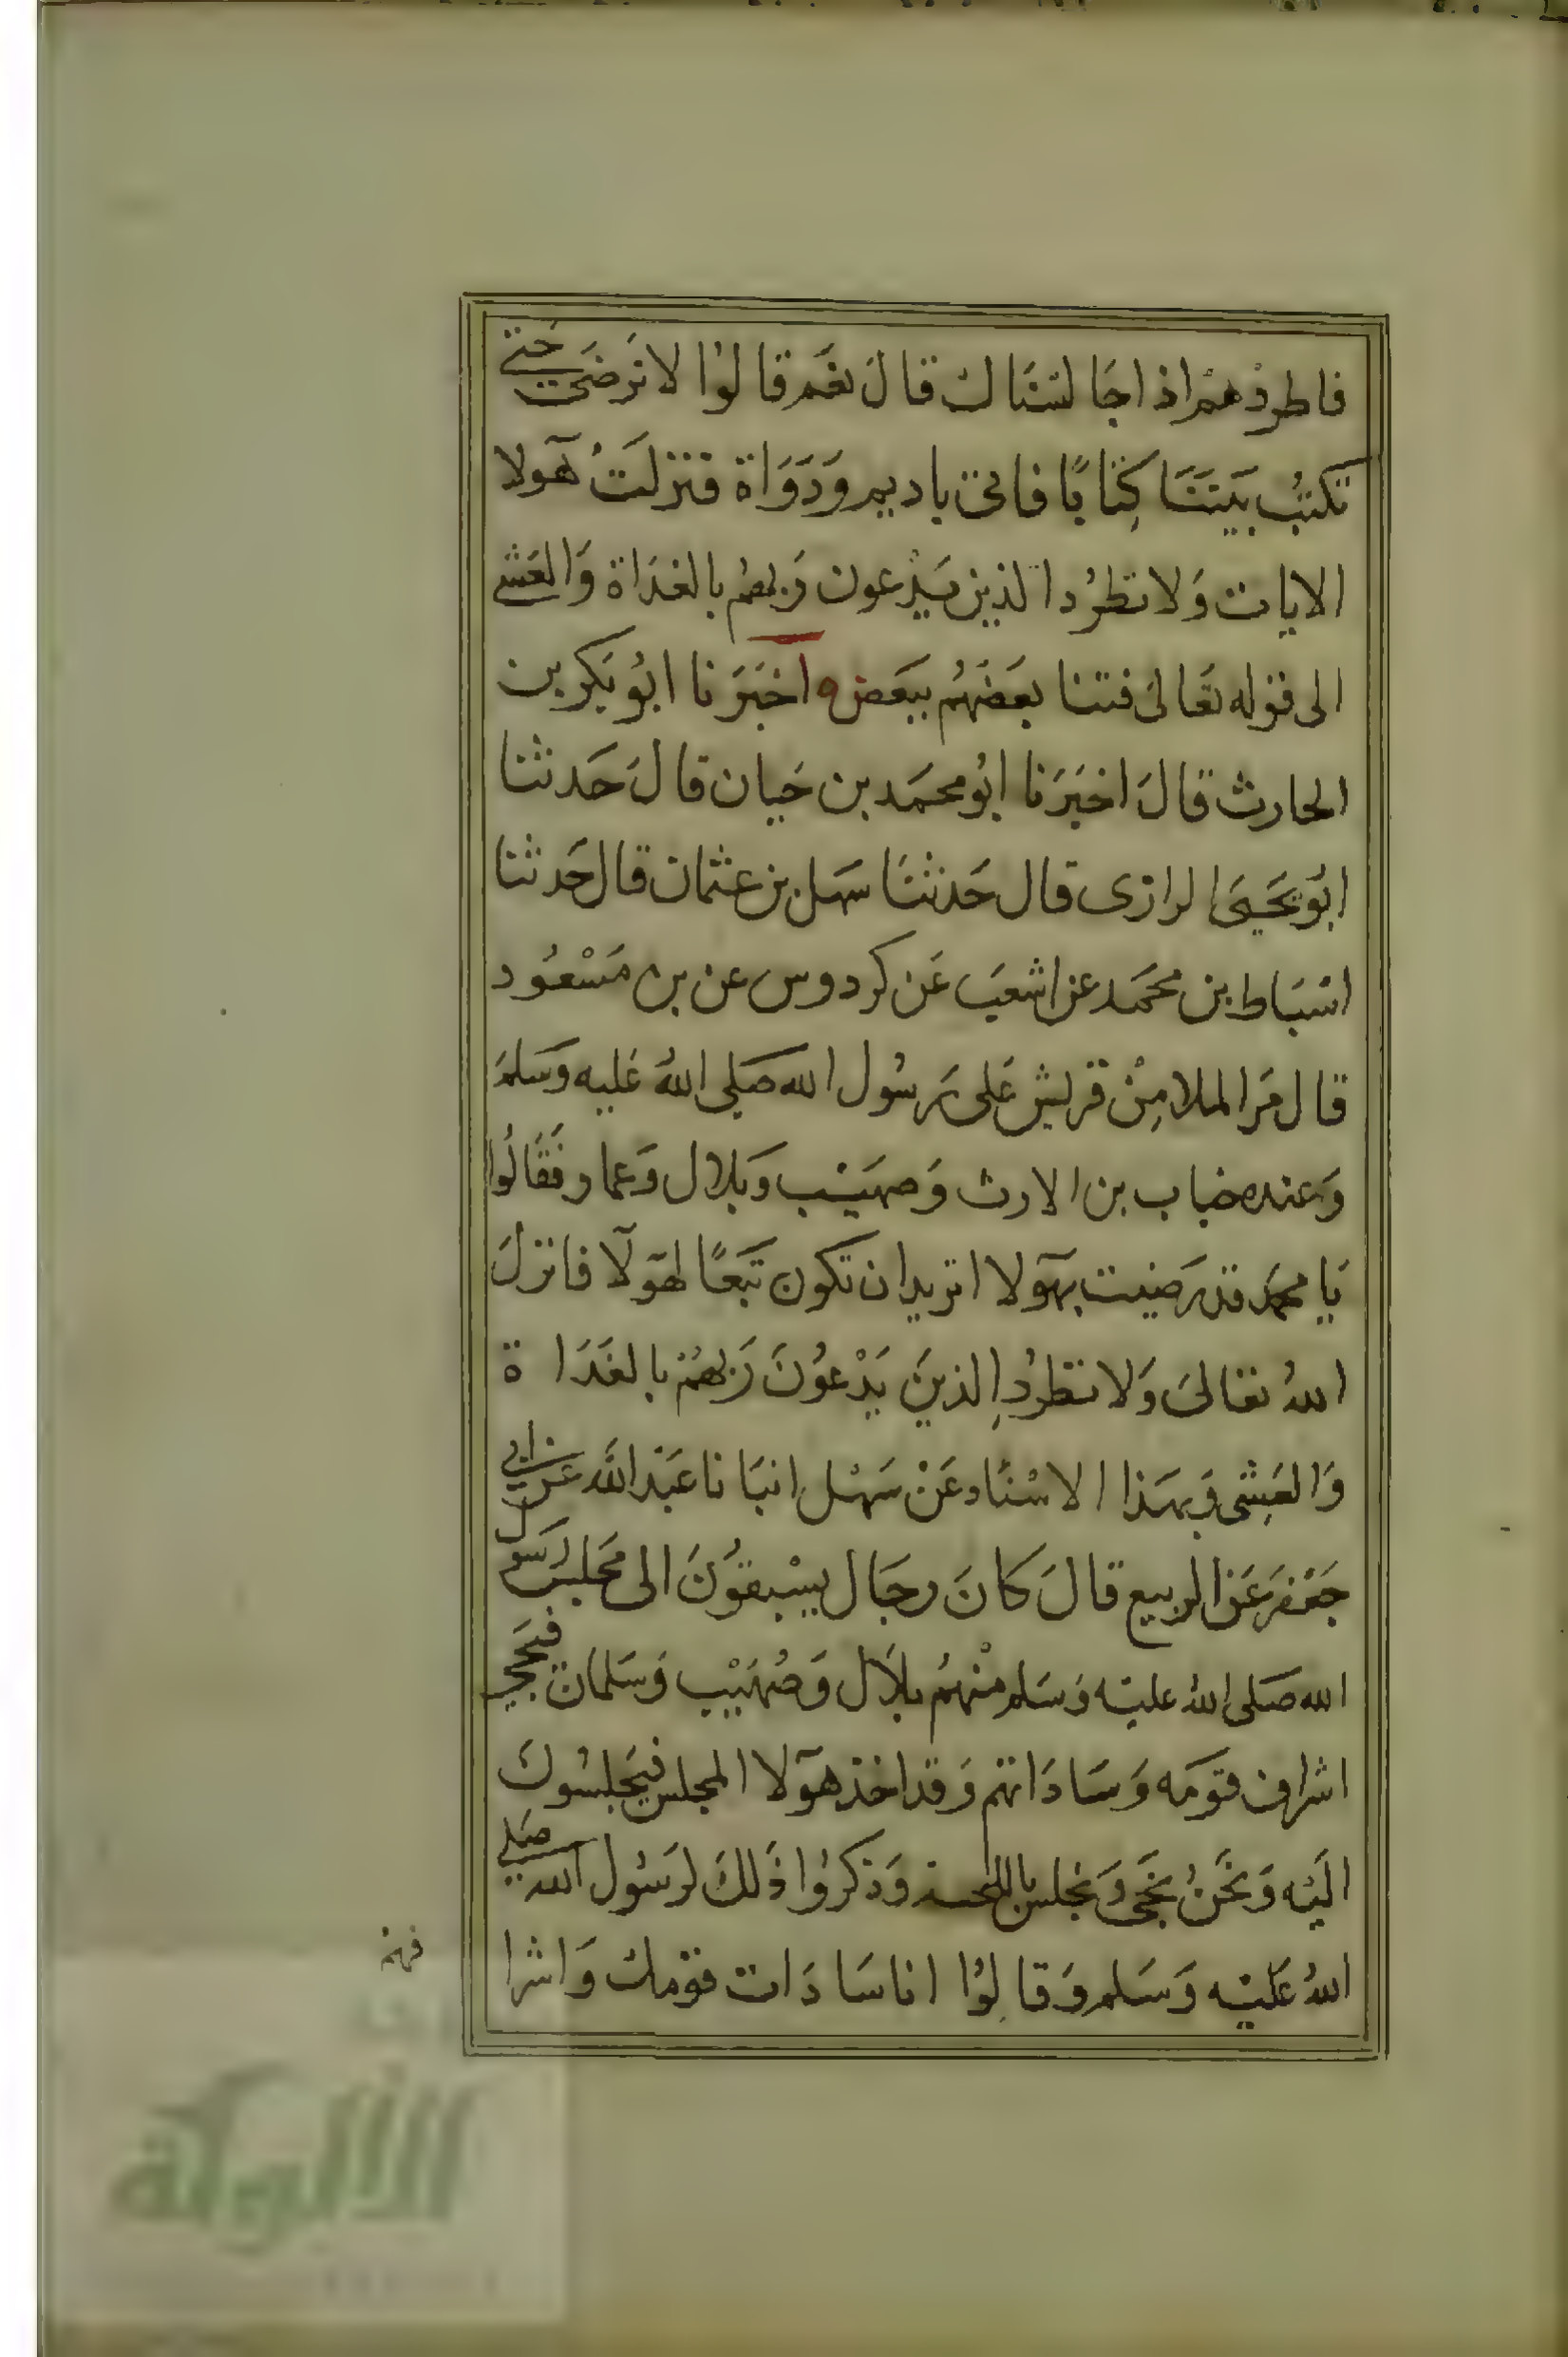 فاطردْهمْ اذا جَالسْنَاك قالَ نعَم قالوْا لا نَرضَى حَتى
تكتبُ بَينَنَا كِتَابًا فاتى باديم وَدَوَاة فنزلَتْ هَولا
الايات وَلا تطرُد الذين يَدْعون رَبهمْ بالغدَاة وَالعَشى
الى قوله تعَالىَ فتنا بعَضهُم ببَعض ه آخبَرَنا ابُو بَكر بن
الحارث قالَ اخبَرَنا ابُو محمَد بن حَيان قالَ حَدثنا
ابُو يحَيىَ الرازى قال حَدثنَا سَهل بن عثمان قال حَدثنا
اسْبَاط بن محمَد عن اشعَب عَن كردوس عن بن مَسْعُود
قال مَر الملا مِنْ قريش عَلى رَسُول الله صَلى اللهُ عَليه وَسَلمَ
وَعنده خباب بن الارث وَصهيْب وَبلال وَعمار فَقَالُوا
يَا محمد قد رَضيت بهَولا اتريد ان تكون تَبَعًا لهوَلآ فانزلَ
اللهُ تعَالىَ وَلا تطرُدِ الذينَ يَدْعوُنَ رَبهمْ بالغَدَا ة
وَالعَشِى وَبهَذا الاسْنَاد عَنْ سَهْل انبَانا عَبْد الله عَن ابى
جَعْفَر عَن الربيع قالَ كانَ رجَال يسْبقوُنَ الى مَجلس رَسول
الله صَلى اللهُ عليْه وَسَلم منْهُم بلاَل وَصُهَيْب وَسَلمان فيَجى
اشراف قومَه وَسَادَاتهم وَقد اخذ هَولا المجلس فيَجلسُون
اليْه وَنحَنُ نجَى وَنجلس بالناحية وَذكروُا ذَلكَ لرَسُول الله صَلى
اللهُ عَليْه وَسَلم وَقالوُا انا سَادَات قوْمك وَاشرا
فهم
الألوكة